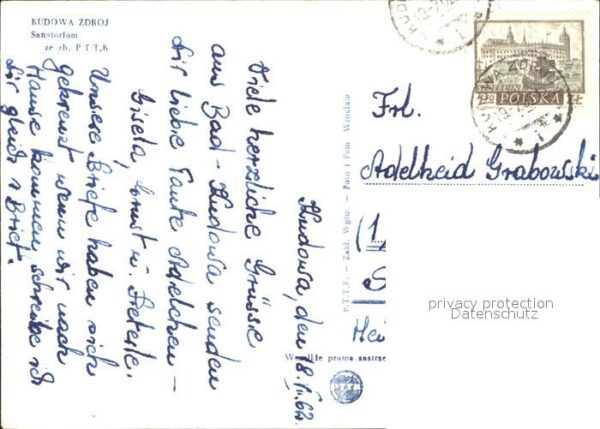 KUDOWA ZDROJ
Sanatorium
ze zb. P T T K
Kudowa, den 18.VII.62.
Viele herzliche Grüsse
aus Bad-Kudowa senden
dir liebe Tante Adelchen –
Gisela, Ernst u.
Unsere Briefe haben sich
gekreuzt wenn wir nach
Hause kommen, schreibe ich
dir gleich 1 Brief.
P.T.T.K. — Zakł. Wytw. — Foto i Pam. Wrocław
Wszelkie prawa zastrze
PTTK
SZCZECIN
POLSKA
ZŁ
KUDOWA ZDRÓJ
Frl.
Adelheid Grabowski
(1
S
Hei
privacy protection
Datenschutz